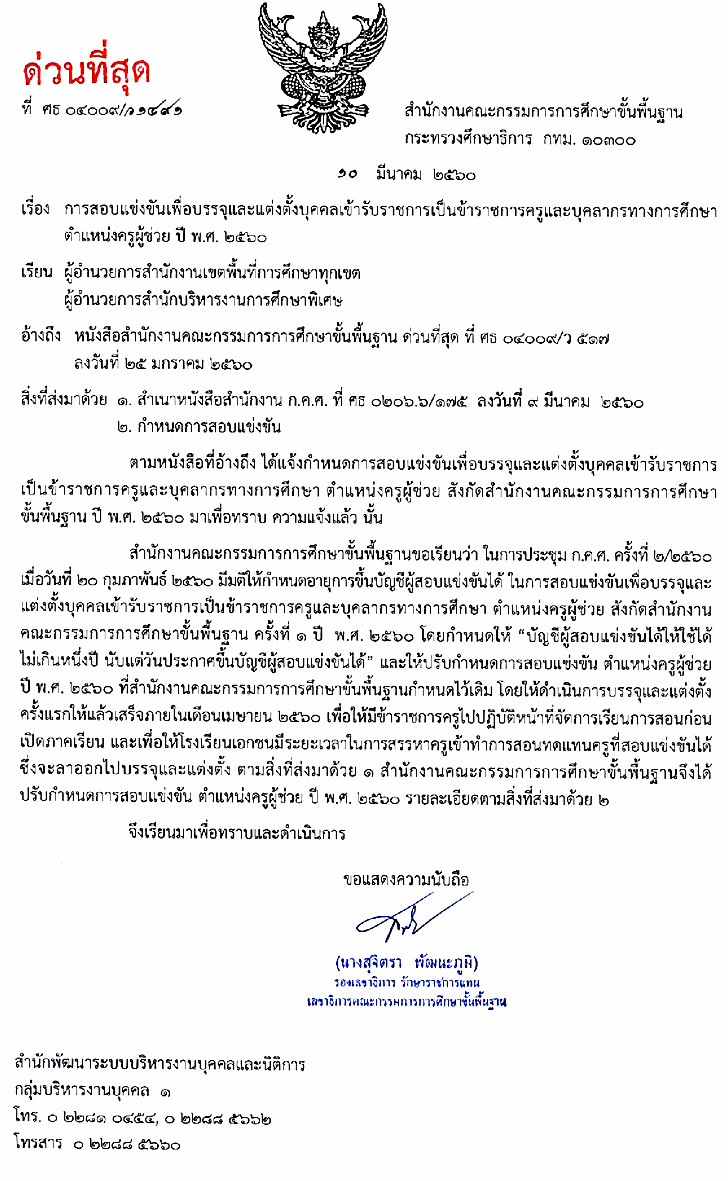 ด่วนที่สุด
ที่ ศธ ๐๔๐๐๙/ว๑๔๙๑
สำนักงานคณะกรรมการการศึกษาขั้นพื้นฐาน
กระทรวงศึกษาธิการ กทม. ๑๐๓๐๐
๑๐ มีนาคม ๒๕๖๐
เรื่อง การสอบแข่งขันเพื่อบรรจุและแต่งตั้งบุคคลเข้ารับราชการเป็นข้าราชการครูและบุคลากรทางการศึกษา
ตำแหน่งครูผู้ช่วย ปี พ.ศ. ๒๕๖๐
เรียน ผู้อำนวยการสำนักงานเขตพื้นที่การศึกษาทุกเขต
ผู้อำนวยการสำนักบริหารงานการศึกษาพิเศษ
อ้างถึง หนังสือสำนักงานคณะกรรมการการศึกษาขั้นพื้นฐาน ด่วนที่สุด ที่ ศธ ๐๔๐๐๙/ว ๕๑๗
ลงวันที่ ๒๕ มกราคม ๒๕๖๐
สิ่งที่ส่งมาด้วย ๑. สำเนาหนังสือสำนักงาน ก.ค.ศ. ที่ ศธ ๐๒๐๖.๖/๑๗๕ ลงวันที่ ๙ มีนาคม ๒๕๖๐
๒. กำหนดการสอบแข่งขัน
ตามหนังสือที่อ้างถึง ได้แจ้งกำหนดการสอบแข่งขันเพื่อบรรจุและแต่งตั้งบุคคลเข้ารับราชการ
เป็นข้าราชการครูและบุคลากรทางการศึกษา ตำแหน่งครูผู้ช่วย สังกัดสำนักงานคณะกรรมการการศึกษา
ขั้นพื้นฐาน ปี พ.ศ. ๒๕๖๐ มาเพื่อทราบ ความแจ้งแล้ว นั้น
สำนักงานคณะกรรมการการศึกษาขั้นพื้นฐานขอเรียนว่า ในการประชุม ก.ค.ศ. ครั้งที่ ๒/๒๕๖๐
เมื่อวันที่ ๒๐ กุมภาพันธ์ ๒๕๖๐ มีมติให้กำหนดอายุการขึ้นบัญชีผู้สอบแข่งขันได้ ในการสอบแข่งขันเพื่อบรรจุและ
แต่งตั้งบุคคลเข้ารับราชการเป็นข้าราชการครูและบุคลากรทางการศึกษา ตำแหน่งครูผู้ช่วย สังกัดสำนักงาน
คณะกรรมการการศึกษาขั้นพื้นฐาน ครั้งที่ ๑ ปี พ.ศ. ๒๕๖๐ โดยกำหนดให้ “บัญชีผู้สอบแข่งขันได้ให้ใช้ได้
ไม่เกินหนึ่งปี นับแต่วันประกาศขึ้นบัญชีผู้สอบแข่งขันได้” และให้ปรับกำหนดการสอบแข่งขัน ตำแหน่งครูผู้ช่วย
ปี พ.ศ. ๒๕๖๐ ที่สำนักงานคณะกรรมการการศึกษาขั้นพื้นฐานกำหนดไว้เดิม โดยให้ดำเนินการบรรจุและแต่งตั้ง
ครั้งแรกให้แล้วเสร็จภายในเดือนเมษายน ๒๕๖๐ เพื่อให้มีข้าราชการครูไปปฏิบัติหน้าที่จัดการเรียนการสอนก่อน
เปิดภาคเรียน และเพื่อให้โรงเรียนเอกชนมีระยะเวลาในการสรรหาครูเข้าทำการสอนทดแทนครูที่สอบแข่งขันได้
ซึ่งจะลาออกไปบรรจุและแต่งตั้ง ตามสิ่งที่ส่งมาด้วย ๑ สำนักงานคณะกรรมการการศึกษาขั้นพื้นฐานจึงได้
ปรับกำหนดการสอบแข่งขัน ตำแหน่งครูผู้ช่วย ปี พ.ศ. ๒๕๖๐ รายละเอียดตามสิ่งที่ส่งมาด้วย ๒
จึงเรียนมาเพื่อทราบและดำเนินการ
ขอแสดงความนับถือ
(นางสุจิตรา พัฒนะภูมิ)
รองเลขาธิการ รักษาราชการแทน
เลขาธิการคณะกรรมการการศึกษาขั้นพื้นฐาน
สำนักพัฒนาระบบบริหารงานบุคคลและนิติการ
กลุ่มบริหารงานบุคคล ๑
โทร. ๐ ๒๒๘๑ ๐๔๕๔, ๐ ๒๒๘๘ ๕๖๖๒
โทรสาร ๐ ๒๒๘๘ ๕๖๖๐